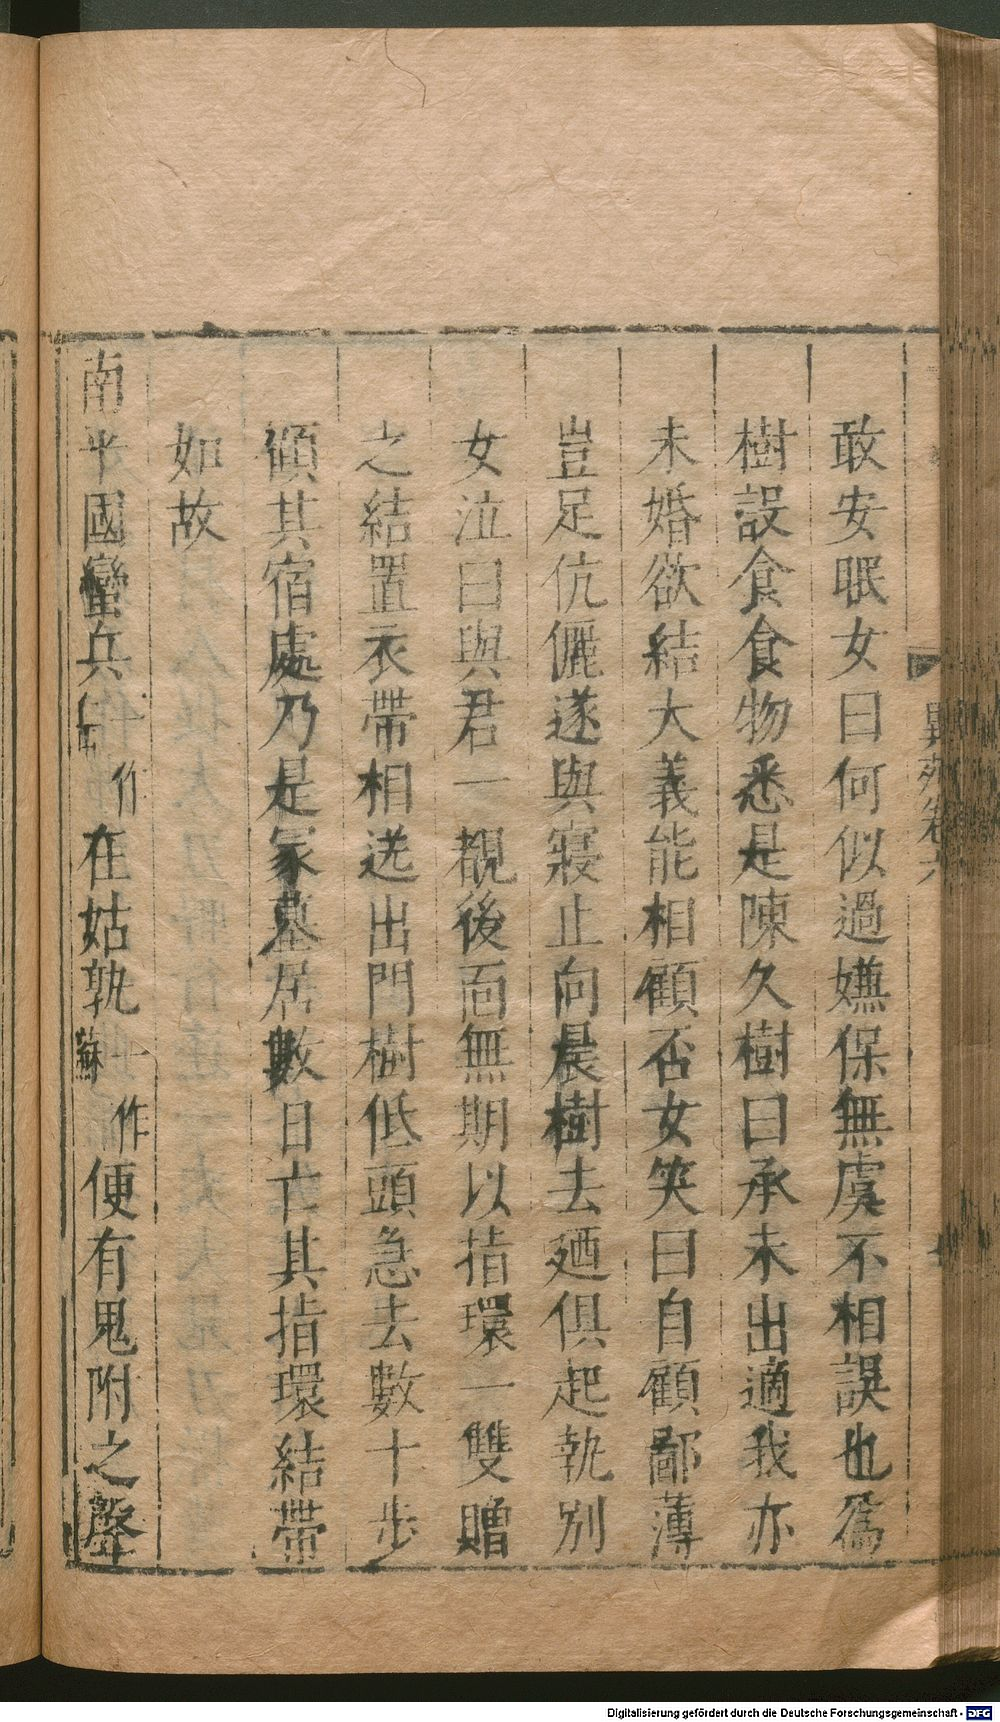 敢安眠女曰何似過嫌保無虞不相誤也爲
樹設食食物悉是陳久樹曰承未出適我亦
未婚欲結大義能相顧否女笑曰自顧鄙薄
豈足伉儷遂與寢止向晨樹去廼俱起執別
女泣曰與君一覩後面無期以指環一雙贈
之結置衣帶相送出門樹低頭急去數十步
顧其宿處乃是冢墓居數日亡其指環結帶
如故
南平國蠻兵 作在姑孰一作蘇便有鬼附之聲
異苑卷六
Digitalisierung gefördert durch die Deutsche Forschungsgemeinschaft - DFG